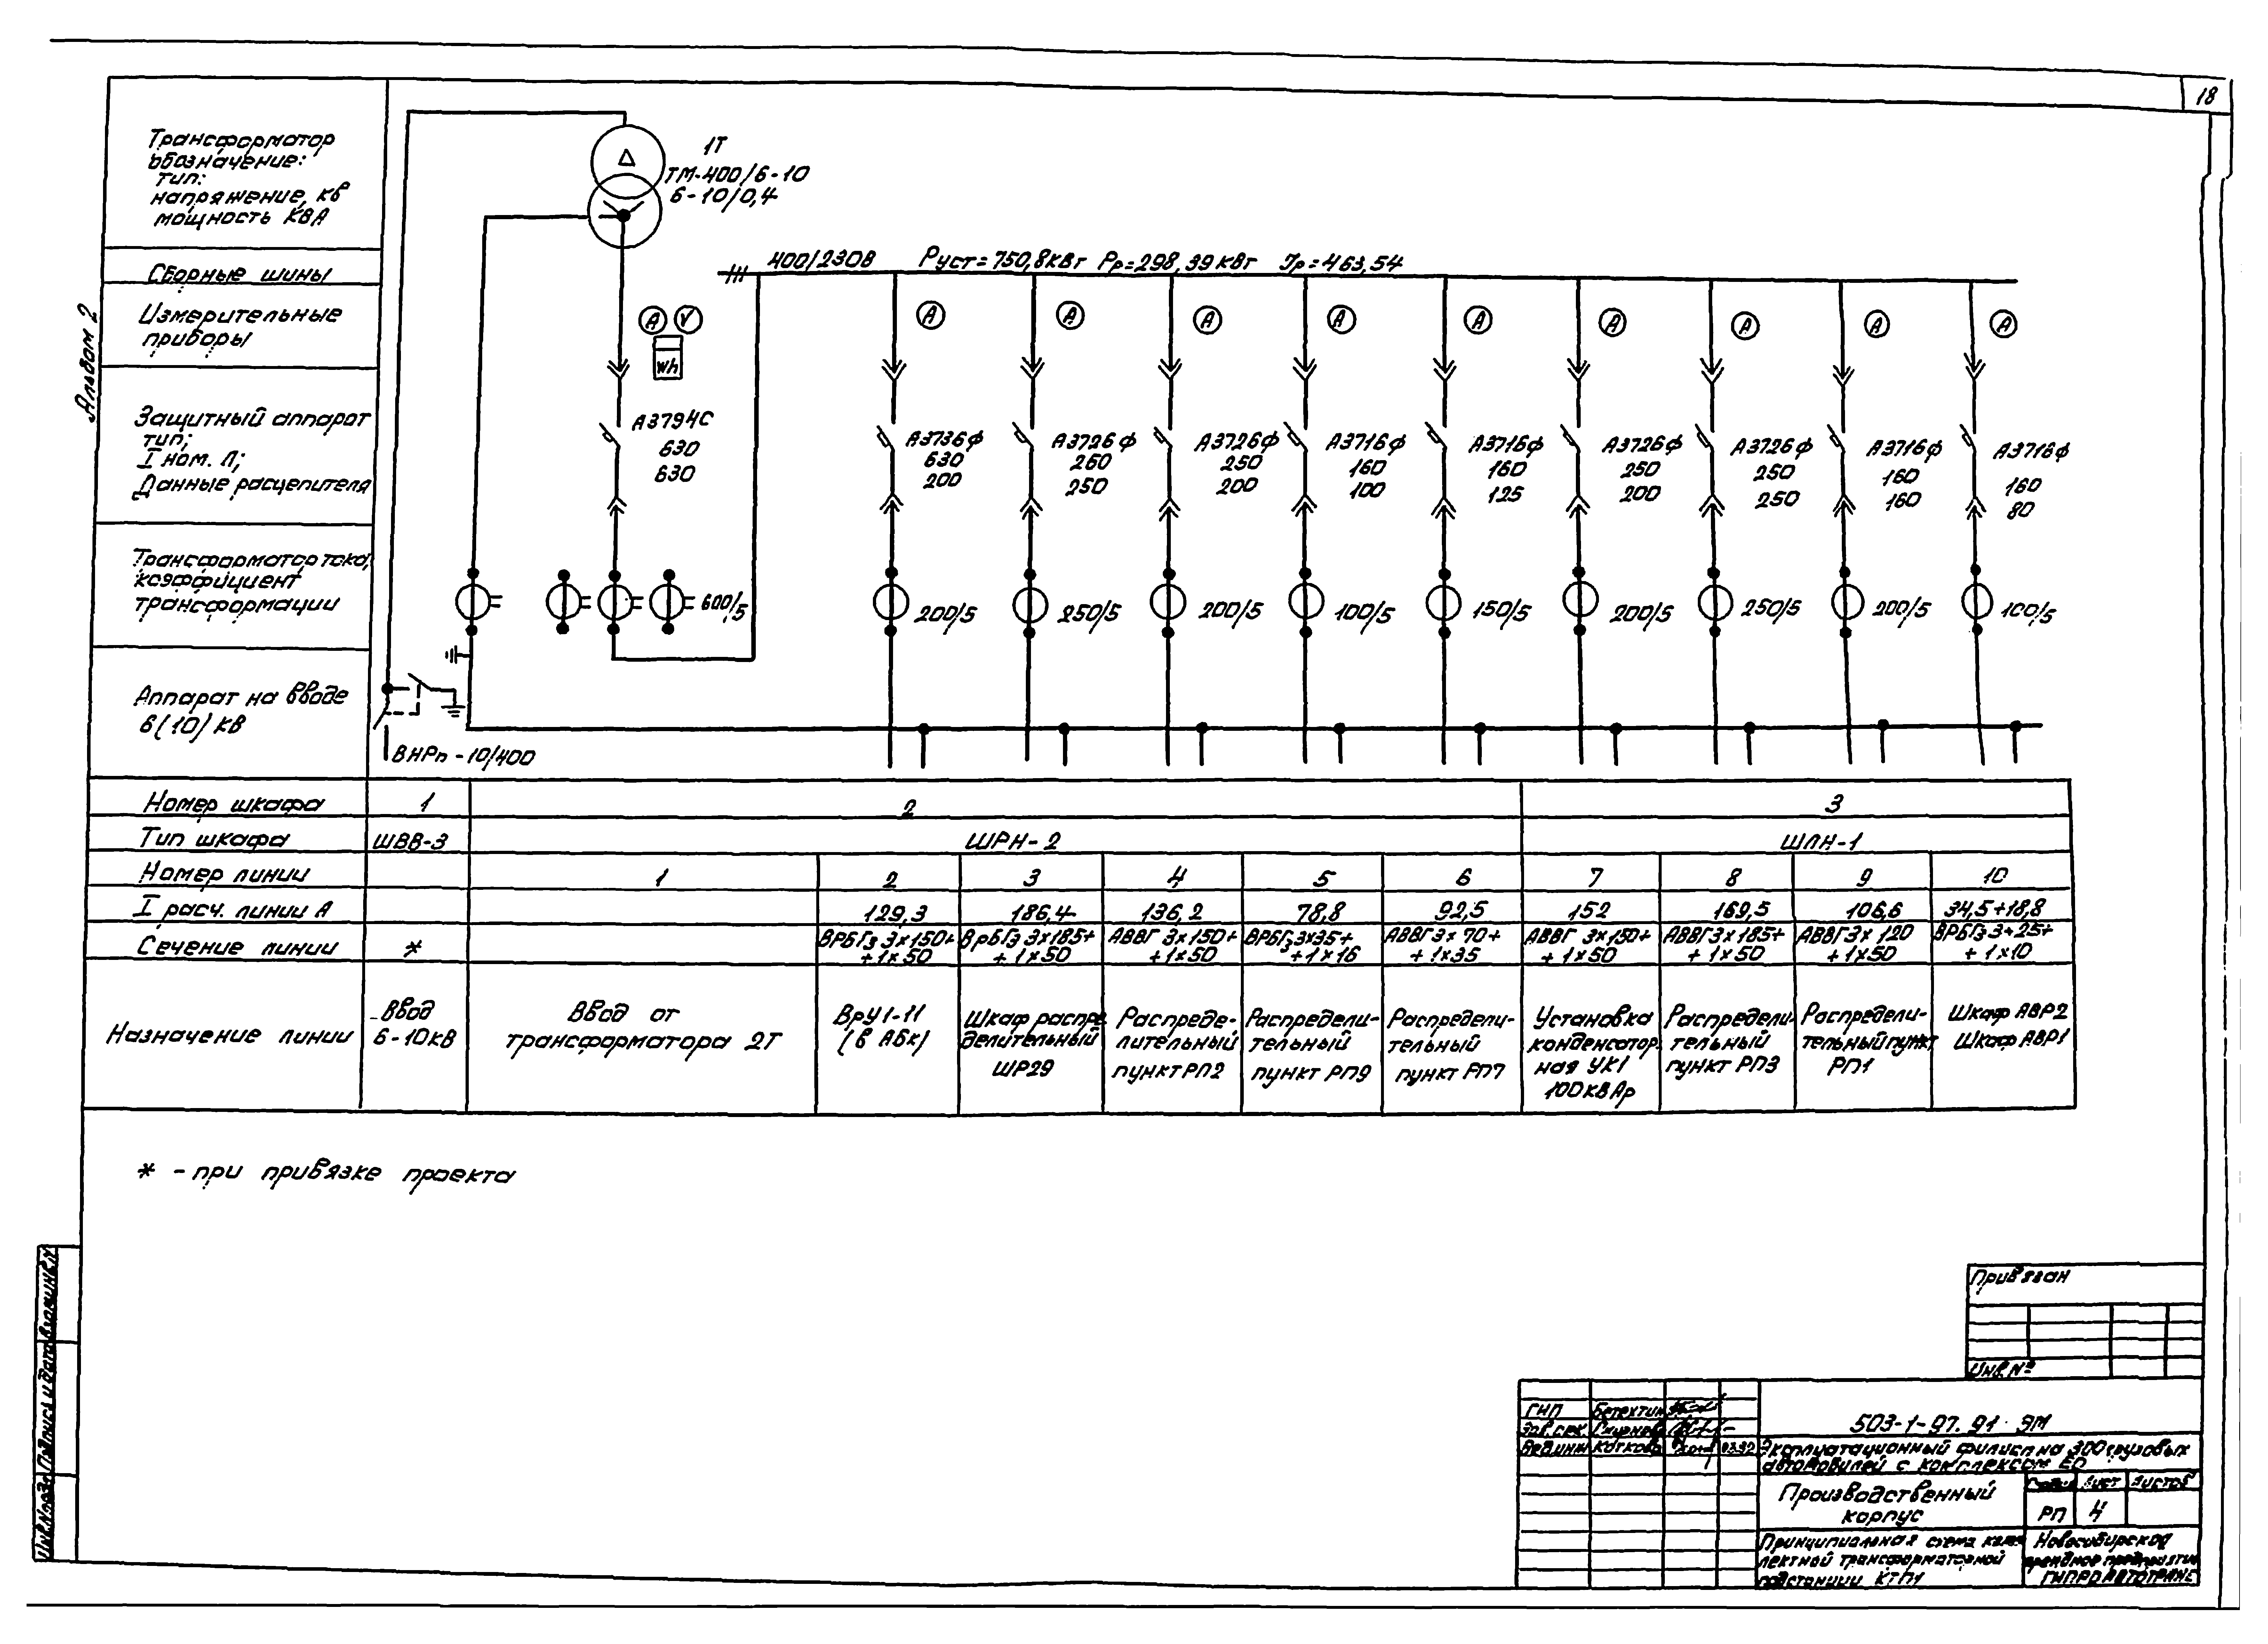 18
Альбом 2
Трансформатор
обозначение:
тип:
напряжение, кв
мощность КВА
Сборные шины
Измерительные
приборы
Защитный аппарат
тип;
I ном. Л;
Данные расцепителя
Трансформатор тока,
коэффициент
трансформации
Аппарат на вводе
6(10) кв
1Т
ТМ-400/6-10
6-10/0,4
400/230В Руст=750,8квт Рр=298,39квт Jр=463,54
A V
Wh
A A A A A A A A A
А3794С
630
630
А3736Ф
630
200
А3726Ф
260
250
А3726Ф
250
200
А3716Ф
160
100
А3716Ф
160
125
А3726Ф
250
200
А3726Ф
250
250
А3716Ф
160
160
А3716Ф
160
80
600/5 200/5 250/5 200/5 100/5 150/5 200/5 250/5 200/5 100/5
ВНРп-10/400
Номер шкафа 1 2 3
Тип шкафа ШВВ-3 ШРН-2 ШЛН-1
Номер линии 1 2 3 4 5 6 7 8 9 10
I расч. линии А 129,3 186,4 136,2 78,8 92,5 152 169,5 106,6 34,5+18,8
Сечение линии *
ВРБГз 3×150+
+1×50
ВрБГз 3×185+
+1×50
АВВГ 3×150+
+1×50
ВРБГз3×35+
+1×16
АВВГ3×70+
+1×35
АВВГ 3×150+
+1×50
АВВГ3×185+
+1×50
АВВГ3×120
+1×50
ВРБГз3×25+
+1×10
Назначение линии
Ввод
6-10кв
Ввод от
трансформатора 2Т
ВрУ1-11
(в АБк)
Шкаф распре
делительный
ШР29
Распреде-
лительный
пункт РП2
Распредели-
тельный
пункт РП9
Распредели-
тельный
пункт РП7
Установка
конденсатор
ная УК1
100кВАр
Распредели-
тельный
пункт РП3
Распредели-
тельный пункт
РП1
Шкаф АВР2
Шкаф АВР1
* - при привязке проекта
Привязан
Инв.№
ГИП Бетехтин
Зав.сек. Смирнов
503-1-97.91 ЭМ
Эксплуатационный филиал на 300 грузовых
автомобилей с комплексом ЕО
Производственный
корпус
Лист Листов
РП 4
Принципиальная схема комп
лектной трансформаторной
подстанции КТП1
Новосибирское
арендное предприятие
ГИПРОАВТОТРАНС
Взам.инв.№
Подпись и дата
Инв.№подл.